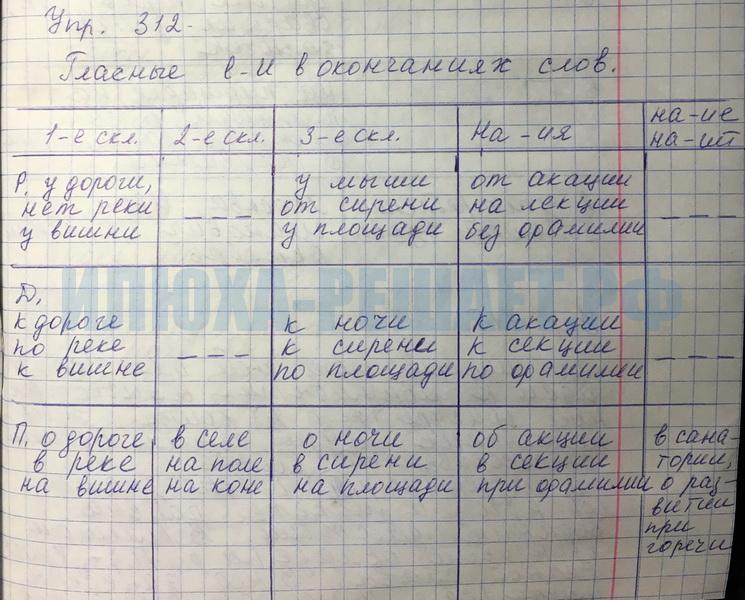 Упр. 312.
Гласные е-и в окончаниях слов.
1-е скл. 2-е скл. 3-е скл. На -ия на -ие
на -ий
Р. у дороги, у мыши от акации
нет реки _ _ _ от сирени на лекции _ _ _
у вишни у площади без фамилии
ИЛЮХА-РЕШАЕТ.РФ
Д.
к дороге к ночи к акации
по реке _ _ _ к сирени к секции _ _ _
к вишне по площади по фамилии
П. о дороге в селе о ночи об акции в сана-
в реке на поле в сирени в секции тории,
на вишне на коне на площади при фамилии о раз-
витии
при
горечи